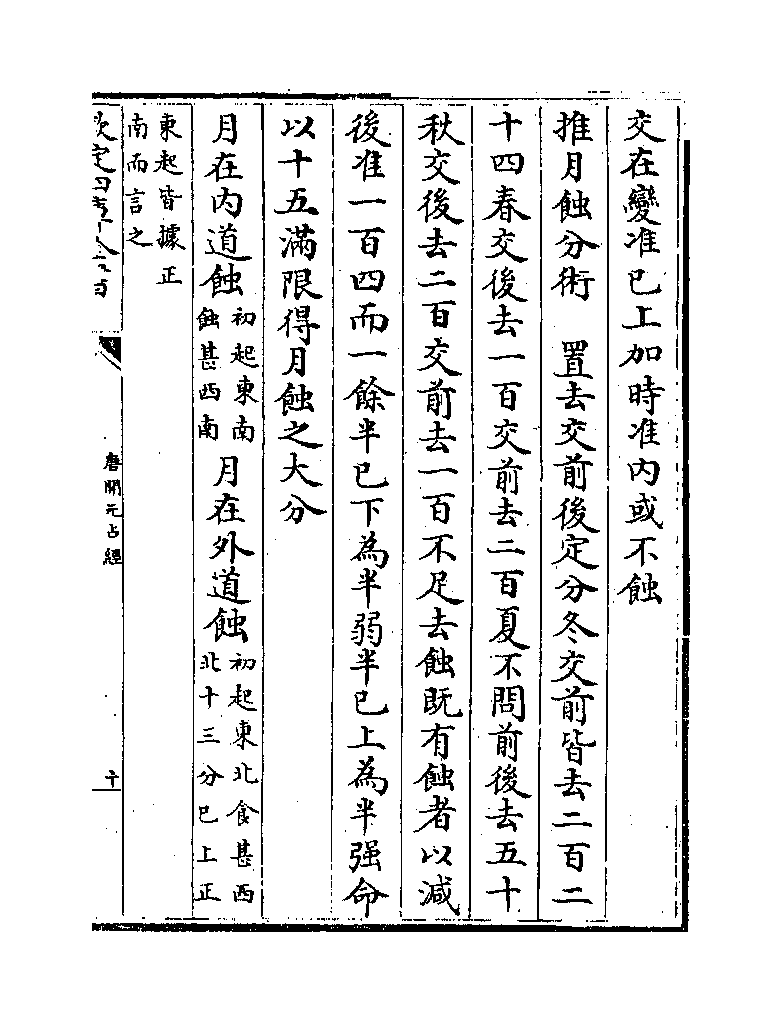 交在變准已上加時准内或不蝕
推月蝕分術　置去交前後定分冬交前皆去二百二
十四春交後去一百交前去二百夏不問前後去五十
秋交後去二百交前去一百不足去蝕既有蝕者以減
後准一百四而一餘半已下為半弱半已上為半强命
以十五滿限得月蝕之大分
月在内道蝕初起東南蝕甚西南月在外道蝕初起東北食甚西北十三分已上正
東起皆據正南而言之
欽定四庫全書
唐開元占經
十